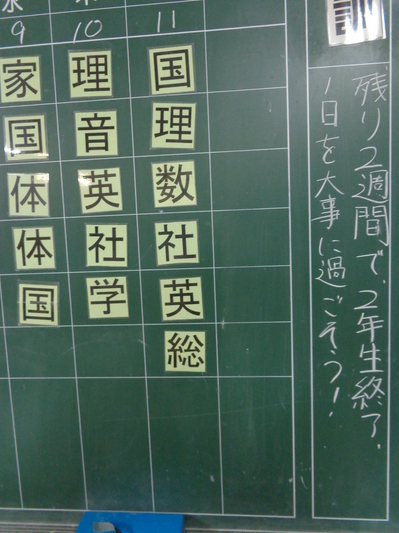 訓
残り2週間で、2年生終了、
1日を大事に過ごそう!
11
国
理
数
社
英
総
10
理
音
英
社
学
9
家
国
体
体
国